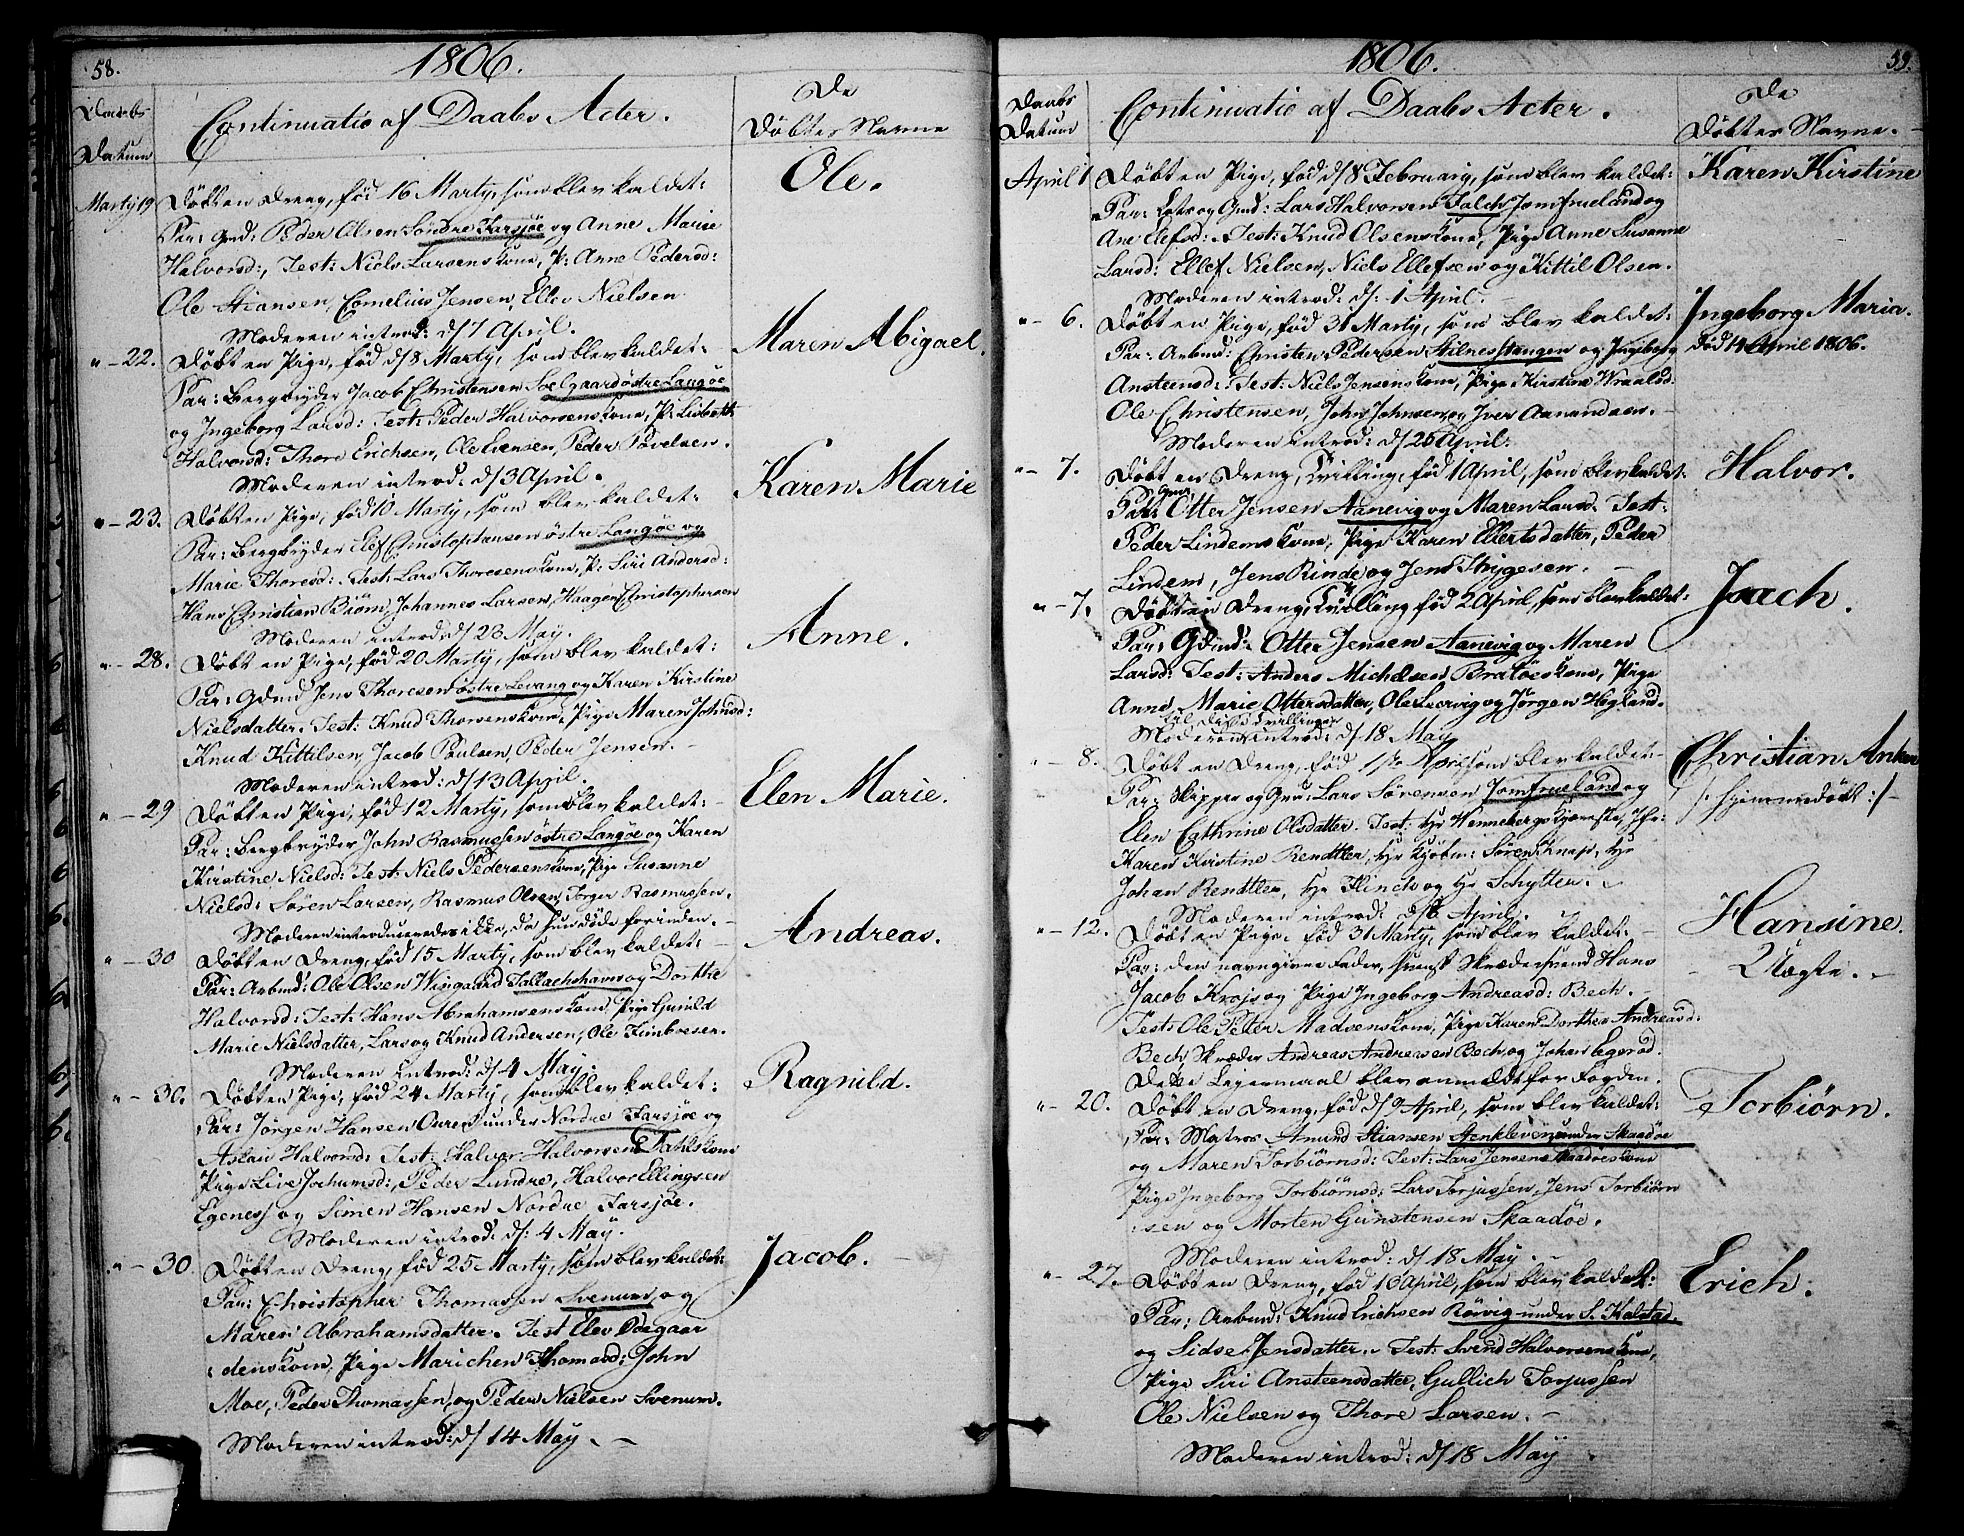 58.
1806.
Daabs
Datum
Continuatio af Daabs Acter.
De
Döbtes Navne
Marty 19
Döbt en Dreng, föd 16 Marty, som blev kaldet:
Ole.
Par: Gmd: Peder Olsen Söndre Farsjöe og Anne Marie
Halvorsd:, Test: Niels Larsens Kone, P: Anne Pedersd:
Ole Stiansen, Cornelius Jensen, Ellev Nielsen
Moderen introd: d/ 7 April.
" - 22.
Döbt en Pige, föd d/ 8 Marty, som blev kaldet:
Maren Abigael.
Par: Bergbryder Jacob Christensen Soelgaard östre Langöe
og Ingeborg Larsd: Test: Peder Halvorsens Kone, P: Lisbeth
Halvorsd: Thore Erichsen, Ole Evensen, Peder Povelsen.
Moderen introd: d/ 3 April.
" - 23.
Döbt en Pige, föd 10 Marty, som blev kaldet:
Karen Marie
Par: Bergbryder Elef Christophansen östre Langöe og
Marie Thoresd: Test: Lars Thoresens Kone, P: Siri Andersd:
Hans Christian Biörn, Johannes Larsen, Haagen Christophersen
Moderen introd: d/ 28 May.
" - 28.
Döbt en Pige, föd 20 Marty, som blev kaldet:
Anne.
Par: Gdmd Jens Thoresen östre Levang og Karen Kirstine
Nielsdatter. Test: Knud Thorsens Kone, Pige Maren Johnsd:
Knud Kittilsen, Jacob Poulsen, Peder Jensen.
Moderen introd: d/ 13 April.
" - 29
Döbt en Pige, föd 12 Marty, som blev kaldet:
Elen Marie.
Par: Bergbryder John Rasmussen östre Langöe og Karen
Kirstine Nielsd: Test: Niels Pedersens Kone, Pige Susanne
Nielsd: Sören Larsen, Rasmus Olsen, Jörger Rasmussen.
Moderen introduceredes ikke, da hun döde forinden.
" - 30
Döbt en Dreng, föd 15 Marty, som blev kaldet:
Andreas.
Par: Arbmd: Ole Olsen Wingaard Tallachshavn og Dorthe
Halvorsd: Test: Hans Abrahamsens Kone Pige Gunild
Marie Nielsdatter, Lars og Knud Andersen, Ole Zimboesen.
Moderen introd: d/ 4 May:
" - 30.
Döbt en Pige, föd 24 Marty, som blev kaldet:
Ragnild.
Par: Jörgen Hansen under Nordre Farsjöe og
Aslau Halvorsd: Test: Halvor Halvorsen Dahls Kone
Pige Live Jochumsd:, Peder Lundre, Halvor Ellingsen
Egenes, og Simen Hansen Nordre Farsjöe.
Moderen introd: d/: 4 May.
" - 30.
Döbt en Dreng, föd 25 Marty, som blev kaldet:
Jacob.
Par: Christopher Thomassen Svenum, og
Maren Abrahamsdatter. Test Elev Odegaar
denskone, Pige Marichen Thomasd: John
Moe, Peder Thomassen, og Peder Nielsen Svenum.
Moderen introd: d/ 14 May.
1806.
59.
Daabs
Datum
Continuatio af Daabs Acter.
De
Döbtes Navne.
April 1
Döbt en Pige, föd d/ 8 February, som blev kaldet:
Karen Kirstine
Par: Lots og Gmd: Lars Halvorsen Falch Jomfrueland og
Ane Elefsd: Test: Knud Olsens Kone, Pige Anne Susanne
Larsd: Ellef Nielsen, Niels Ellefsen og Kittil Olsen.
Moderen introd: d/: 1 April.
" - 6.
Döbt en Pige, föd 31 Marty, som blev kaldet:
Ingeborg Maria.
Par: Arbmd: Christen Pedersen Stilnestangen og Ingeborg
död 14 April 1806.
Ansteensd: Test: Niels Jensens Kone, Pige Kirstine Wraalsd:
Ole Christensen, John Johnsen, og Iver Aanundsen.
Moderen introd: d/ 26 April.
" - 7.
Döbt en Dreng, Tvilling, föd 1 April, som blev kaldet:
Halvor.
Par: Gmd: Otter Jensen Aanevig og Maren Larsd: Test:
Peder Lindems Kone, Pige Karen Ellertsdatter, Peder
Lindem, Jens Rinde og Jens Thygesen.
" - 7.
Döbt en Dreng, Tvilling föd 2 April, som blev kaldet:
Joach.
Par: Gdmd: Otter Jensen Aanevig og Maren
Larsd: Test: Anders Michelsen Bratöes Kone, Pige
Anne Marie Ottersdatter, Ole Ludvig og Jörgen Hegland.
til disse Tvillinger
Moderen introd: d/ 18 May
" - 8.
Döbt en Dreng, föd 1ste April som blev kaldet
Christian Anker
Par: Skipper og Gmd: Lars Sörensen Jomfrueland og
/: hjemmedöbt :/
Elen Cathrine Olsdatter. Test: Hr Hennebergs Kjæreste, Jfr:
Karen Kirstine Rendtler, Hr Kjöbm: Sören Knap, Hr
Johan Rendtler, Hr Flinch og Hr Schytter.
Moderen introd: d/ 8 April.
" - 12.
Döbt en Pige, föd 31 Marty, som blev kaldet:
Hansine.
Par: den navngivne Fader, svensk Skrædersvend Hans
Uægte.
Jacob Krojs og Pige Ingeborg Andreasd: Bech.
Test: Ole Peter Madsens Kone, Pige Karen Dorthea Andreasd:
Bech, Skræder Andreas Andreasen Bech, og Johan Egeröd.
Dette Leiermaal blev anmeldt for Fogden.
" - 20.
Döbt en Dreng, föd d/ 9 April, som blev kaldet:
Torbiörn.
Par: Matros Amund Stiansen Stenkleven under Skaadöe
og Maren Torbiörnsd: Test: Lars Jensens Skaadöes Kone
Pige Ingeborg Torbiörnsd: Lars Torjussen, Jens Torbiörn
sen og Morten Gunstensen Skaadöe.
Moderen introd: d/ 18 May.
" - 27.
Döbt en Dreng, föd 16 April, som blev kaldet:
Erich.
Par: Arbmd: Knud Erichsen Rörvig under S. Kalstad.
og Sidse Jensdatter. Test: Svend Halvorsens Kone,
Pige Siri Ansteensdatter, Gullich Torjussen
Ole Nielsen og Thore Larsen.
Moderen introd: d/ 18 May